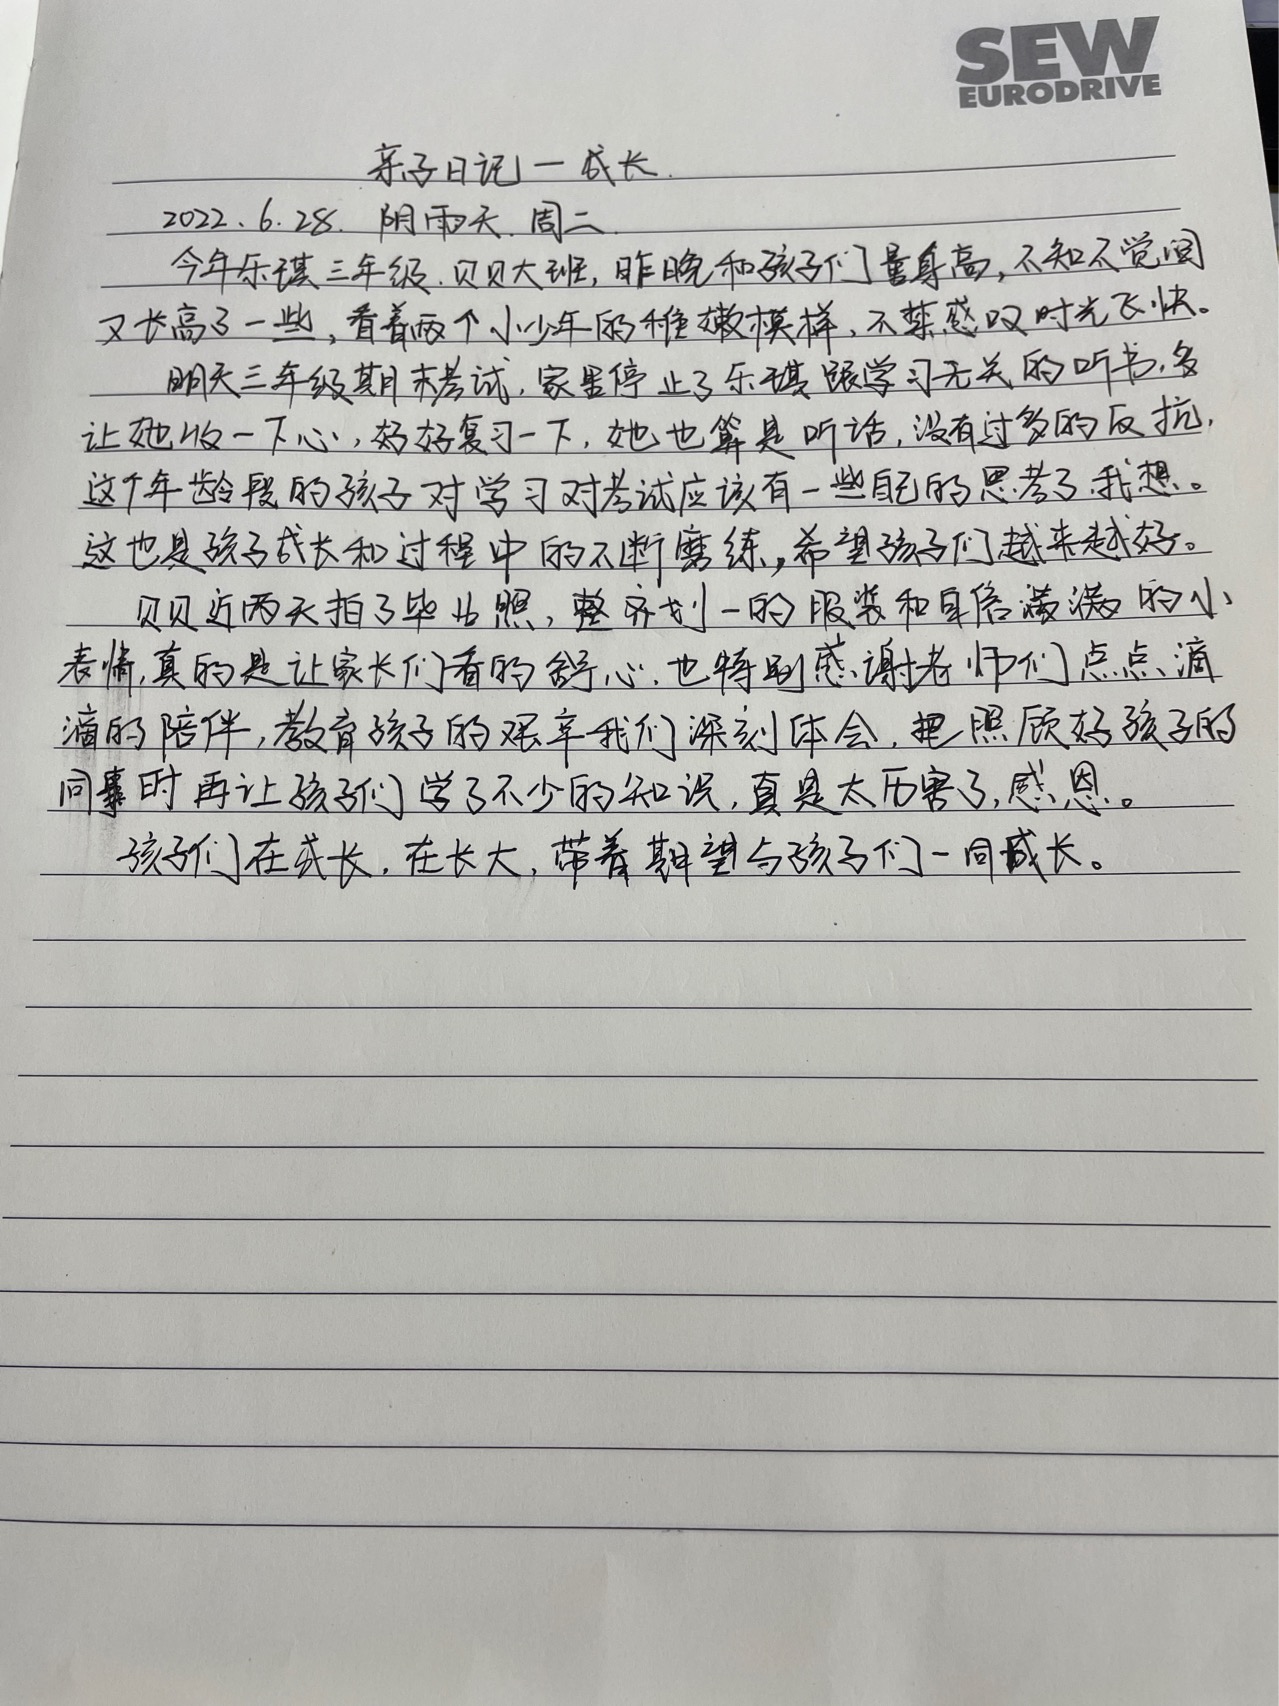 SEW
EURODRIVE
亲子日记—成长.
2022.6.28. 阴雨天. 周二.
今年乐琪三年级.贝贝大班,昨晚和孩子们量身高,不知不觉间
又长高了一些,看着两个小少年的稚嫩模样,不禁感叹时光飞快。
明天三年级期末考试,家里停止了乐琪跟学习无关的听书,多
让她收一下心,好好复习一下,她也算是听话,没有过多的反抗,
这个年龄段的孩子对学习对考试应该有一些自己的思考了,我想。
这也是孩子成长和过程中的不断磨练,希望孩子们越来越好。
贝贝近两天拍了毕业照,整齐划一的服装和自信满满的小
表情,真的是让家长们看的舒心,也特别感谢老师们点点滴
滴的陪伴,教育孩子的艰辛我们深刻体会,把照顾好孩子的
同事时再让孩子们学了不少的知识,真是太历害了,感恩。
孩子们在成长,在长大,带着期望与孩子们一同成长。